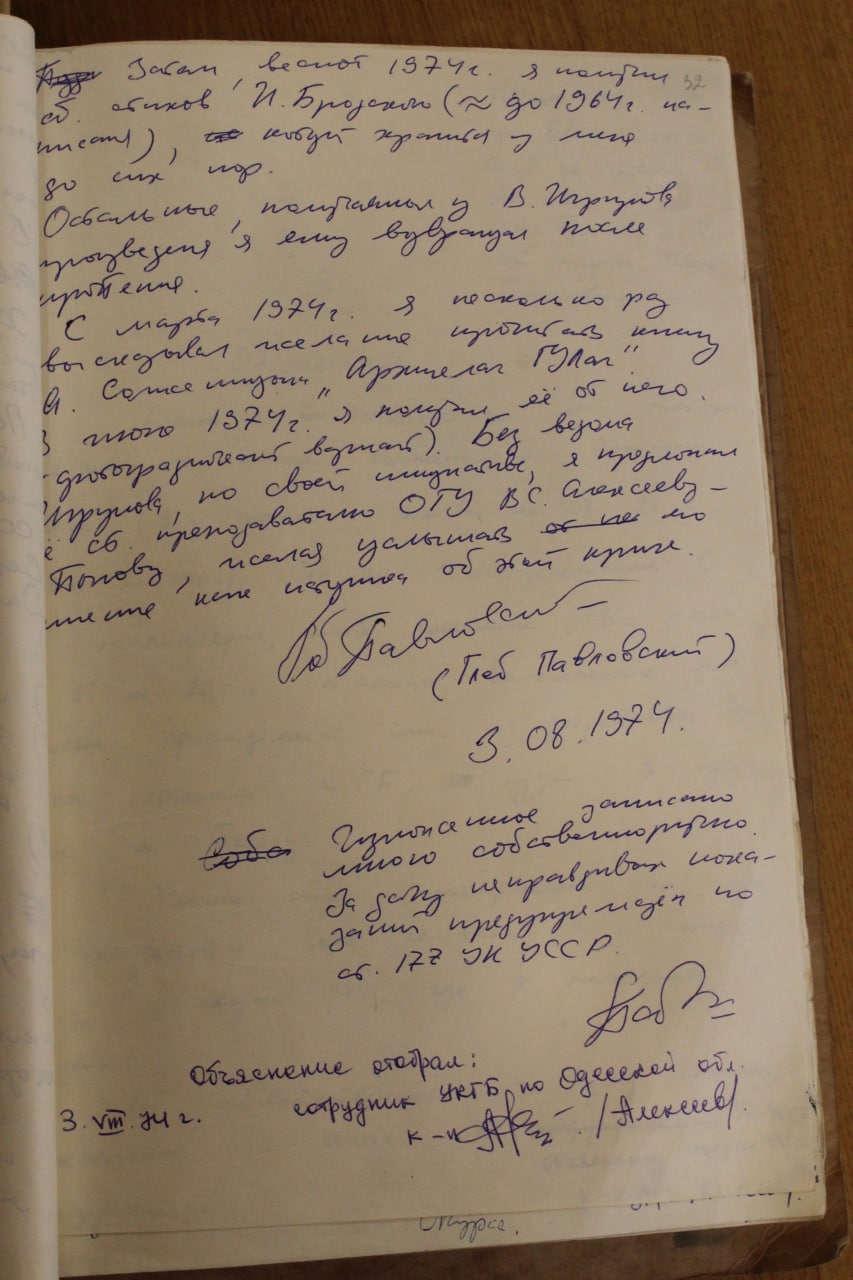 Затем, весной 1974г. я получил 32
сб. стихов И. Бродского (≈ до 1964г. на-
писаны), котор. хранится у меня
до сих пор.
Остальные, полученные у В. Игрунова
произведения я ему возвращал после
прочтения.
С марта 1974г. я несколько раз
высказывал желание прочитать книгу
А. Солженицына „Архипелаг ГУЛаг"
В июне 1974г. я получил её от него.
(фотографический вариант). Без ведома
Игрунова, по своей инициативе, я предложил
её ст. преподавателю ОГУ В.С. Алексееву-
Попову, желая услышать его
мнение как историка об этой книге.
Гб Павловский
(Глеб Павловский)
3.08.1974.
Изложенное записано
мною собственноручно.
За дачу неправдивых пока-
заний предупреждён по
ст. 177 УК УССР.
Объяснение отобрал:
сотрудник УКГБ по Одесской обл.
3.VIII.74 г.
к-н /Алексеев/